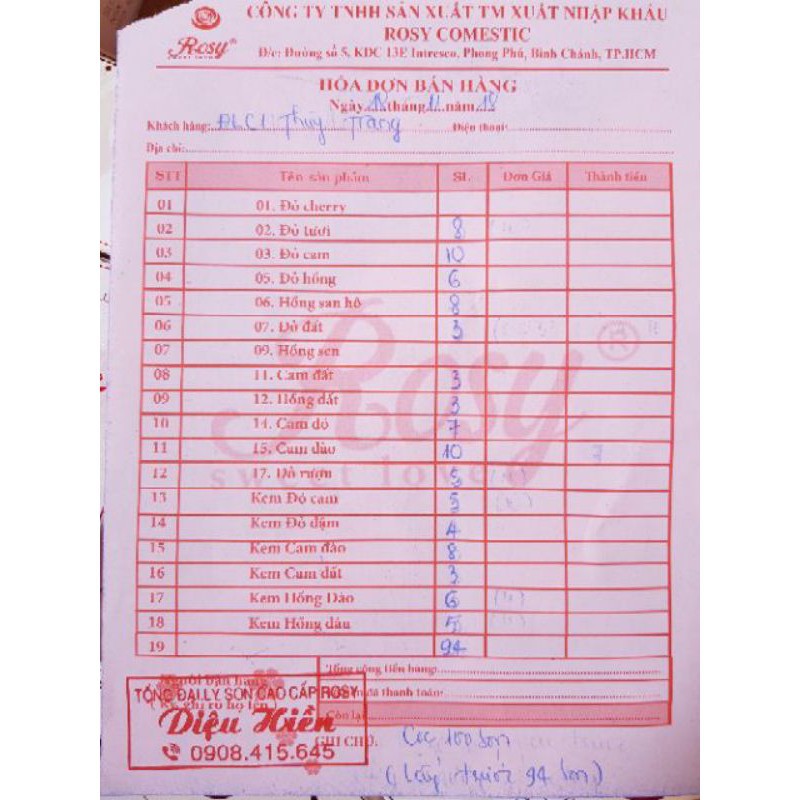 CÔNG TY TNHH SẢN XUẤT TM XUẤT NHẬP KHẨU
ROSY COMESTIC
Rosy®
Đ/c: Đường số 5, KDC 13E Intresco, Phong Phú, Bình Chánh, TP.HCM
HÓA ĐƠN BÁN HÀNG
Ngày 18 tháng 11 năm 18
Khách hàng: ĐLC1 Thùy Trang Điện thoại:
Địa chỉ:
STT Tên sản phẩm SL Đơn Giá Thành tiền
01 01. Đỏ cherry
02 02. Đỏ tươi 8
03 03. Đỏ cam 10
04 05. Đỏ hồng 6
05 06. Hồng san hô 8
06 07. Đỏ đất 3
07 09. Hồng sen
08 11. Cam đất 3
09 12. Hồng đất 3
10 14. Cam đỏ 7
11 15. Cam đào 10
12 17. Đỏ rượu 5
13 Kem Đỏ cam 5
14 Kem Đỏ đậm 4
15 Kem Cam đào 8
16 Kem Cam đất 3
17 Kem Hồng Đào 6
18 Kem Hồng dâu 5
19 94
Rosy®
sweet love
Tổng cộng tiền hàng:
Người bán hàng
(Ký, ghi rõ họ tên)
đã thanh toán:
Còn lại
TỔNG ĐẠI LÝ SON CAO CẤP ROSY
Diệu Hiền
0908.415.645
GHI CHÚ: Cọc 100 son
(lấy trước 94 son)